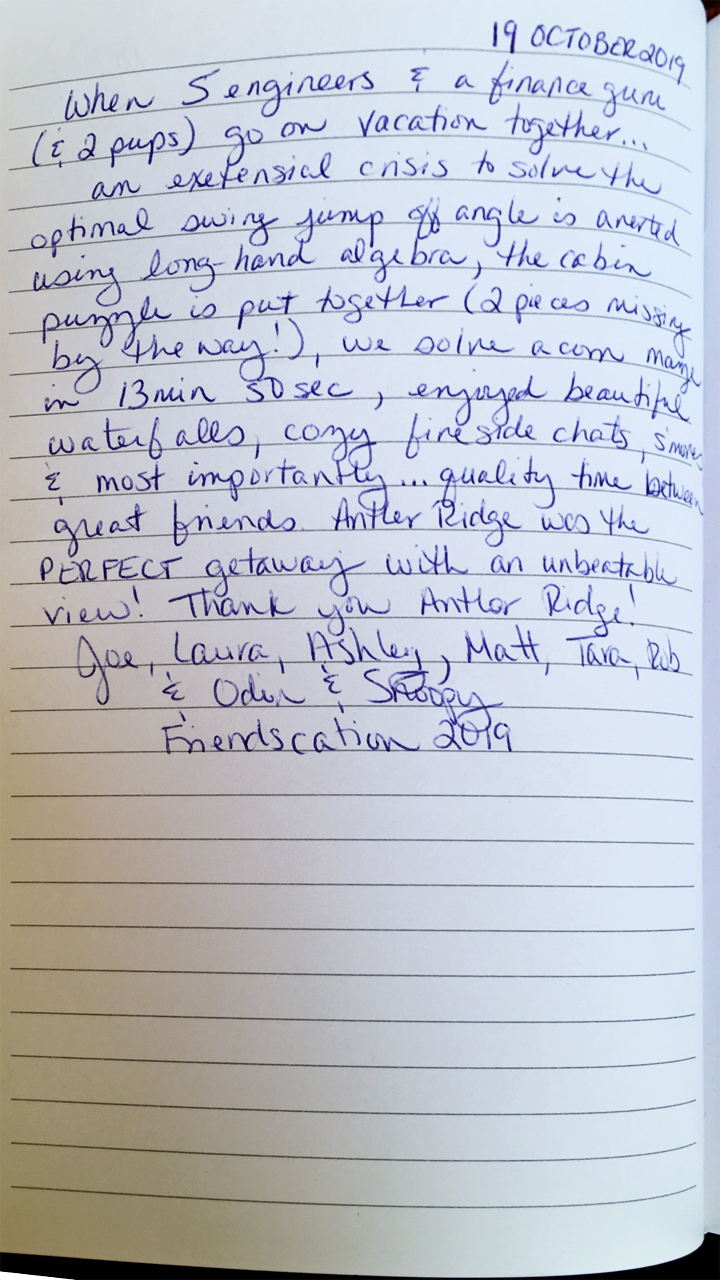 19 OCTOBER 2019
When 5 engineers & a finance guru
(& 2 pups) go on vacation together...
an exetensial crisis to solve the
optimal swing jump off angle is averted
using long-hand algebra, the cabin
puzzle is put together (2 pieces missing
by the way!), we solve a corn maze
in 13min 50sec, enjoyed beautiful
waterfalls, cozy fireside chats, s'mores
& most importantly... quality time between
great friends. Antler Ridge was the
PERFECT getaway with an unbeatable
view! Thank you Antlor Ridge!
Joe, Laura, Ashley, Matt, Tara, Rob
& Odin & Snoopy
Friendscation 2019